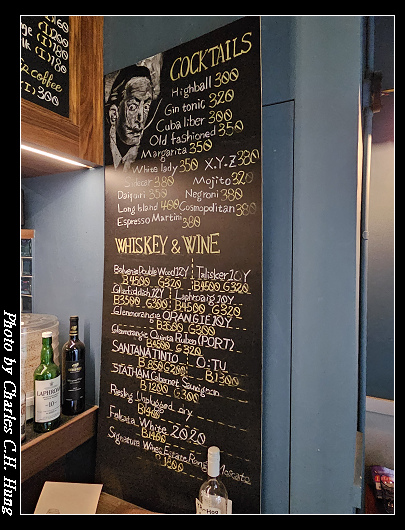 60
(I)180
(I)180
coffee
(I)300
COCKTAILS
Highball 300
Gin tonic 320
Cuba liber 300
Old fashioned 350
Margarita 350
White lady 350 X.Y.Z 380
Sidecar 380 Mojito 320
Daiquiri 350 Negroni 380
Long Island 400 Cosmopolitan 380
Espresso Martini 380
WHISKEY & WINE
Balvenie Double Wood 12Y Talisker 10Y
B 4500 G 320 B 4500 G 320
Glenfiddich 12Y Laphroaig 10Y
B 3500 G 300 B 4500 G 320
Glenmorangie ORANGIE 10Y
B 3500 G 300
Glenmorangie Quinta Ruban (PORT)
G 320
SANTANA TINTO O:TU
B 850 G 200 B 1300
STATHAM Cabernet Sauvignon
B 1200 G 300
Riesling Unplugged dry
B 1400
White 2020
B 1400
Signature Wines Estate Moscato
1300
LAPHROAIG
10
Photo by Charles C.H. Hung